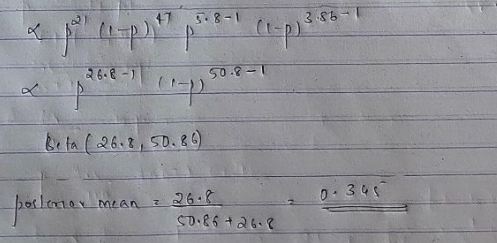 ∝ p^21 (1-p)^47 p^5.8-1 (1-p)^3.86-1
∝ p^26.8-1 (1-p)^50.8-1
Beta (26.8, 50.86)
posterior mean = 26.8 / 50.86 + 26.8 = 0.345